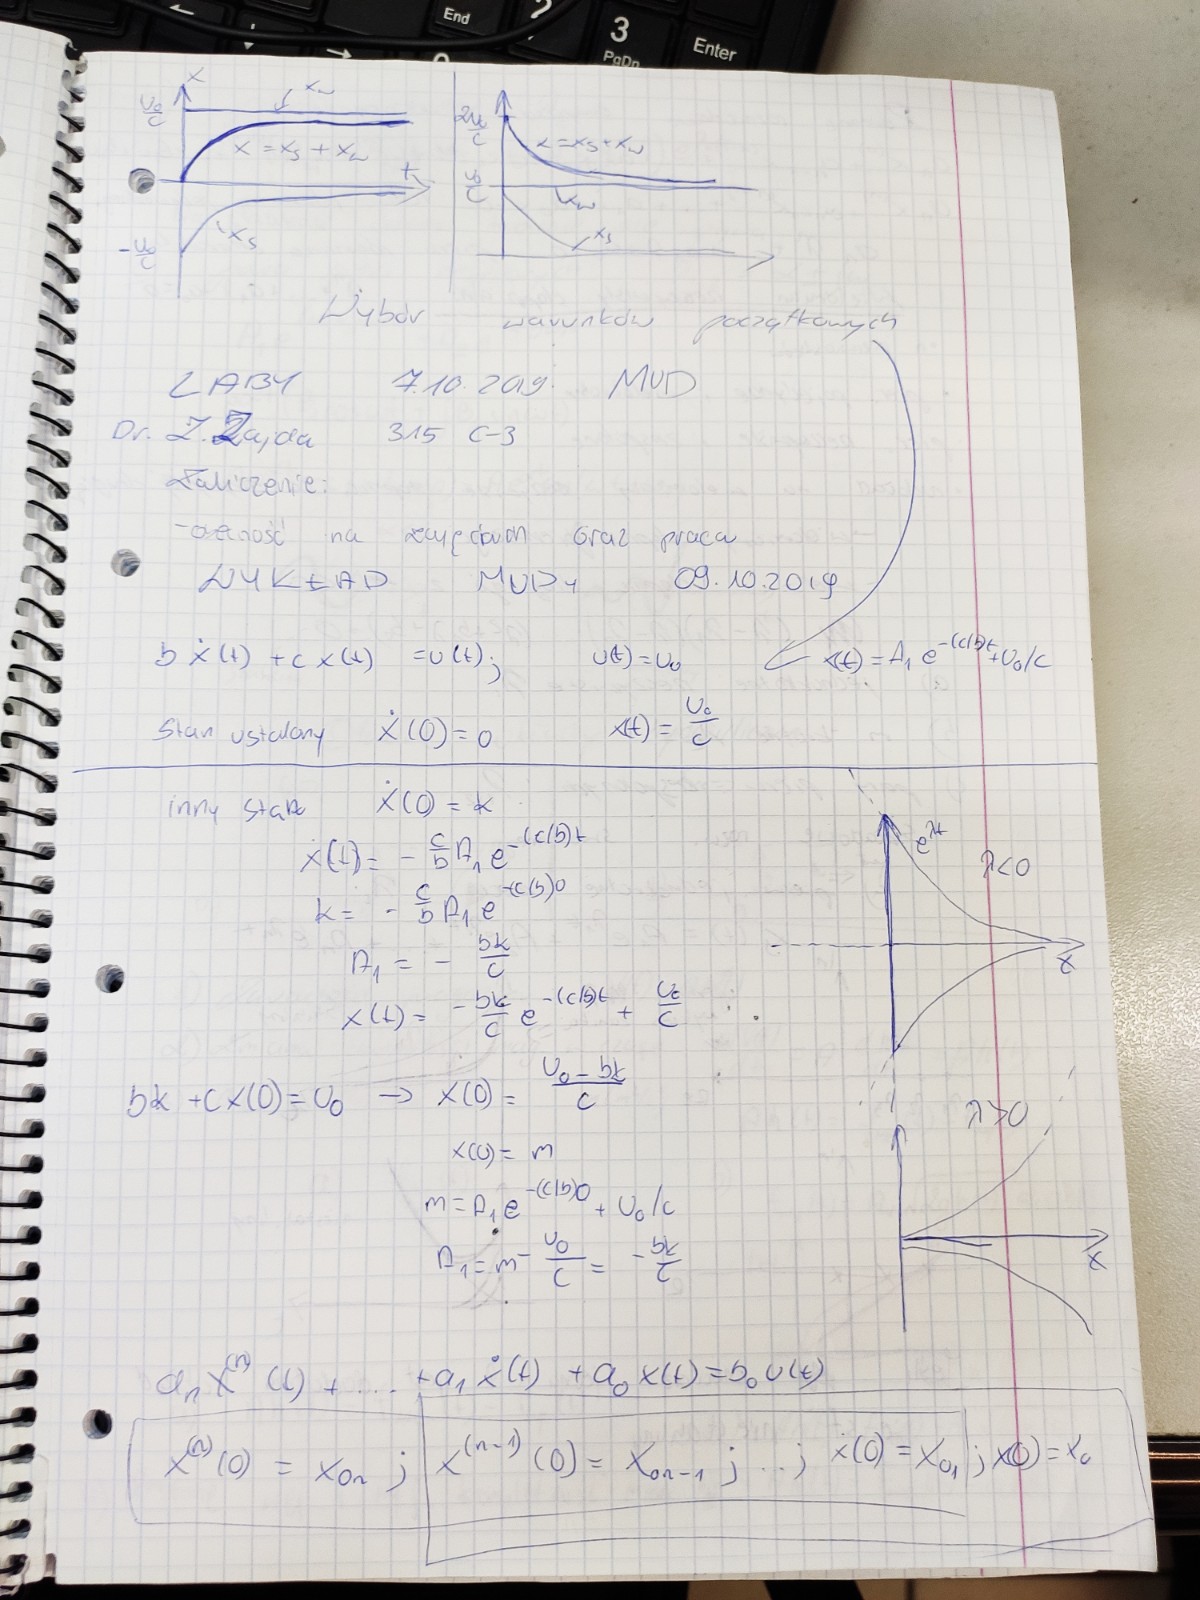 End
3
PgDn
Enter
x
u₀/c
xw
x = xs + xw
t
-u₀/c
xs
2u₀/c
x = xs + xw
u₀/c
xw
xs
Wybór warunków początkowych
LABY 7.10.2019. MUD
Dr. Z. Zajda 315 C-3
Zaliczenie:
-obecność na zajęciach oraz praca
WYKŁAD MUDy 09.10.2019
bẋ(t) + cx(t) = u(t); u(t) = u₀ x(t) = A₁ e^-(c/b)t + u₀/c
Stan ustalony ẋ(0) = 0 x(t) = u₀/c
inny stan ẋ(0) = k
ẋ(t) = - c/b A₁ e^-(c/b)t
k = - c/b A₁ e^-(c/b)0
A₁ = - bk/c
x(t) = - bk/c e^-(c/b)t + u₀/c
e^λt
λ<0
x
bk + cx(0) = u₀ → x(0) = (u₀ - bk)/c
λ>0
x(0) = m
m = A₁ e^-(c/b)0 + u₀/c
A₁ = m - u₀/c = - bk/c
x
aₙ x^(n) (t) + .... + a₁ ẋ(t) + a₀ x(t) = b₀ u(t)
x^(n) (0) = x₀ₙ ; x^(n-1) (0) = x₀ₙ₋₁ ; ...; ẋ(0) = x₀₁ ; x(0) = x₀